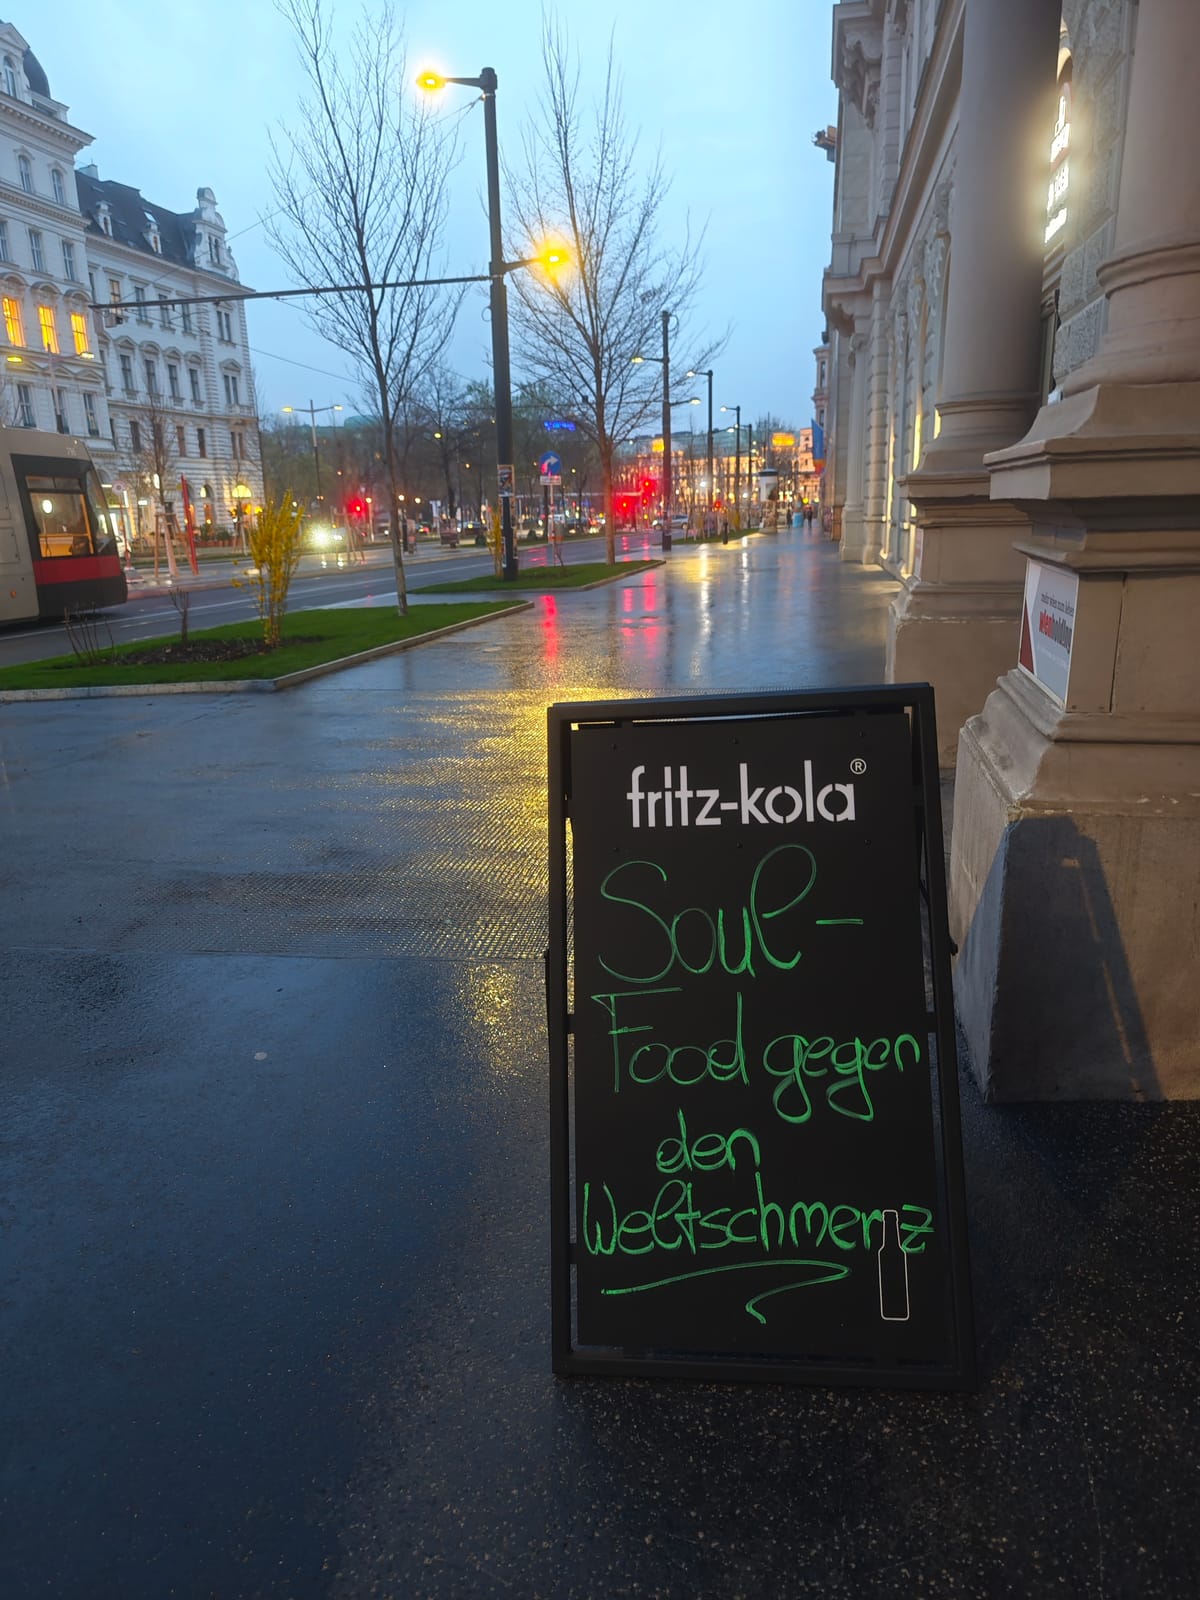 fritz-kola®
Soul-
Food gegen
den
Weltschmerz
wienholding